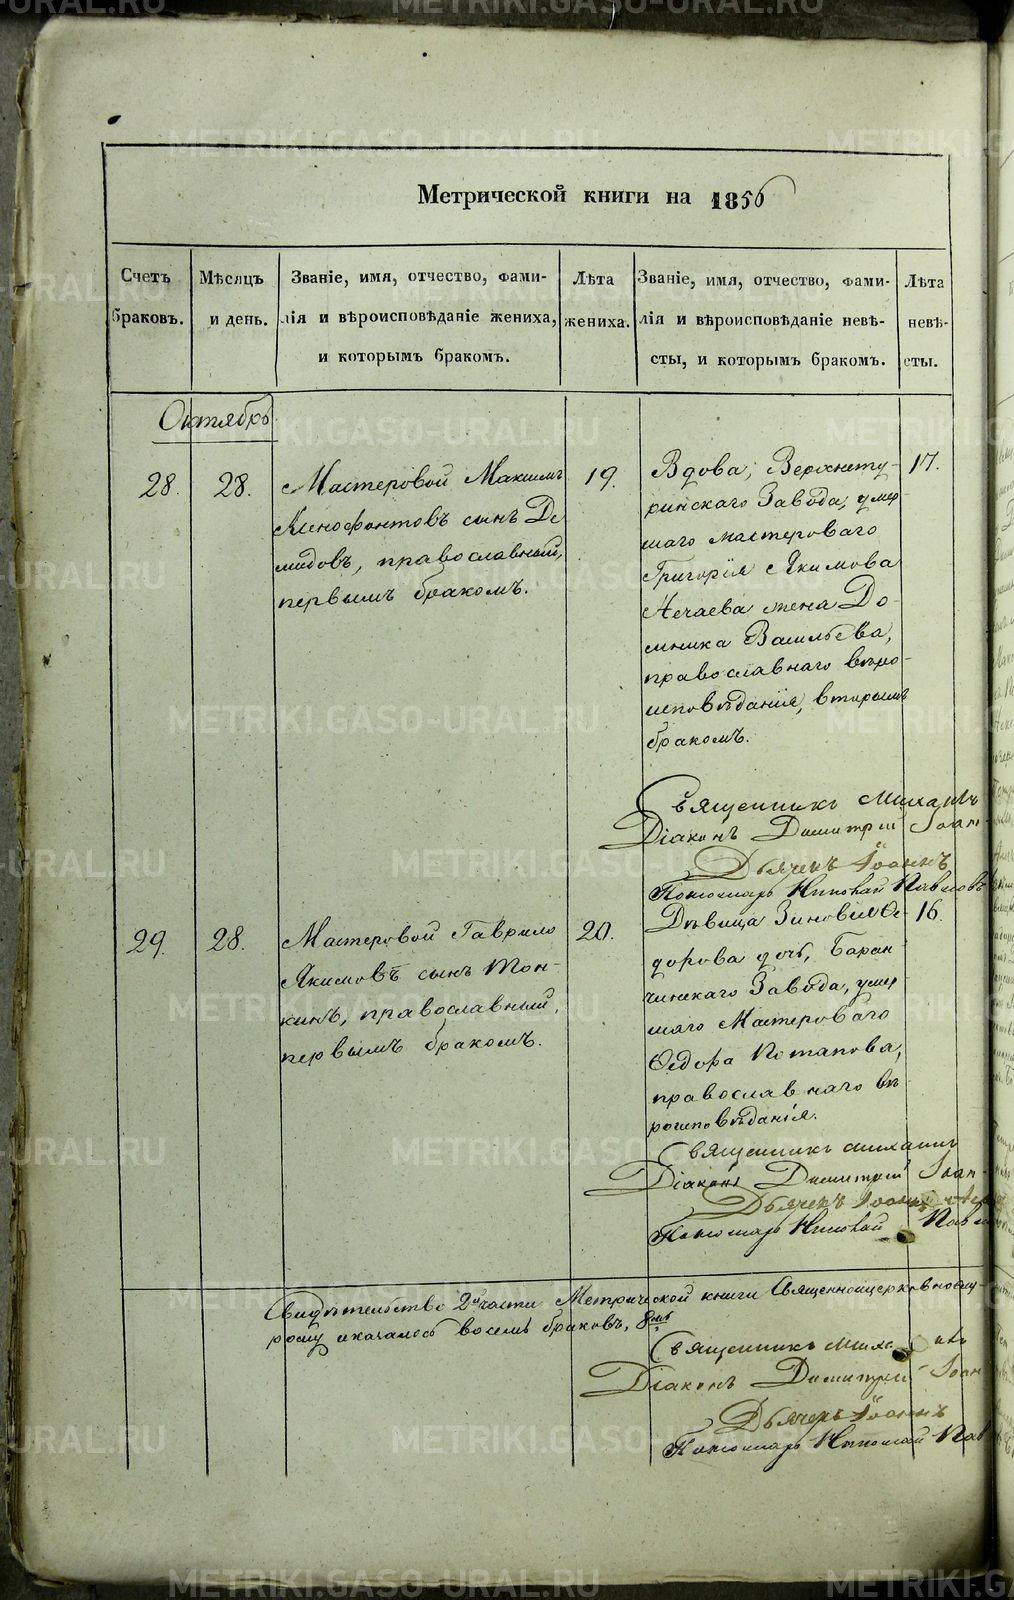 Метрической книги на 1856
Счетъ браковъ.
Мѣсяцъ и день.
Званіе, имя, отчество, фами-
лія и вѣроисповѣданіе жениха,
и которымъ бракомъ.
Лѣта жениха.
Званіе, имя, отчество, фами-
лія и вѣроисповѣданіе невѣ-
сты, и которымъ бракомъ.
Лѣта невѣ-
сты.
Октябрь
28. 28.
Мастеровой Максимъ
Ксенофонтовъ сынъ Де
мидовъ, православный,
первымъ бракомъ.
19.
Вдова, Верхнету-
ринскаго Завода, умер
шаго мастероваго
Григорія Якимова
Нечаева жена До-
мника Васильева,
православнаго вѣро-
исповѣданія, вторымъ
бракомъ.
17.
Священникъ Михаилъ
Діаконъ Димитрій Іоан-
Дьячекъ Іоаннъ
Пономарь Николай Павловъ
29. 28.
Мастеровой Гаврило
Якимовъ сынъ Тон-
кинъ, православный,
первымъ бракомъ.
20.
Дѣвица Зиновия Ѳе-
дорова дочь, Баран
чинскаго Завода, умер
шаго Мастероваго
Ѳедора Потапова,
православнаго вѣ-
роисповѣданія.
16.
Священникъ Михаилъ
Діаконъ Димитрій Іоан-
Дьячекъ Іоаннъ
Пономарь Николай Павл
Свидѣтельство 2й части Метрической книги Священноцерковно
оказалось восемь браковъ,
Священникъ
Діаконъ Димитрій Іоан
Дьячекъ Іоаннъ
Пономарь Николай Пав
METRIKI.GASO-URAL.RU